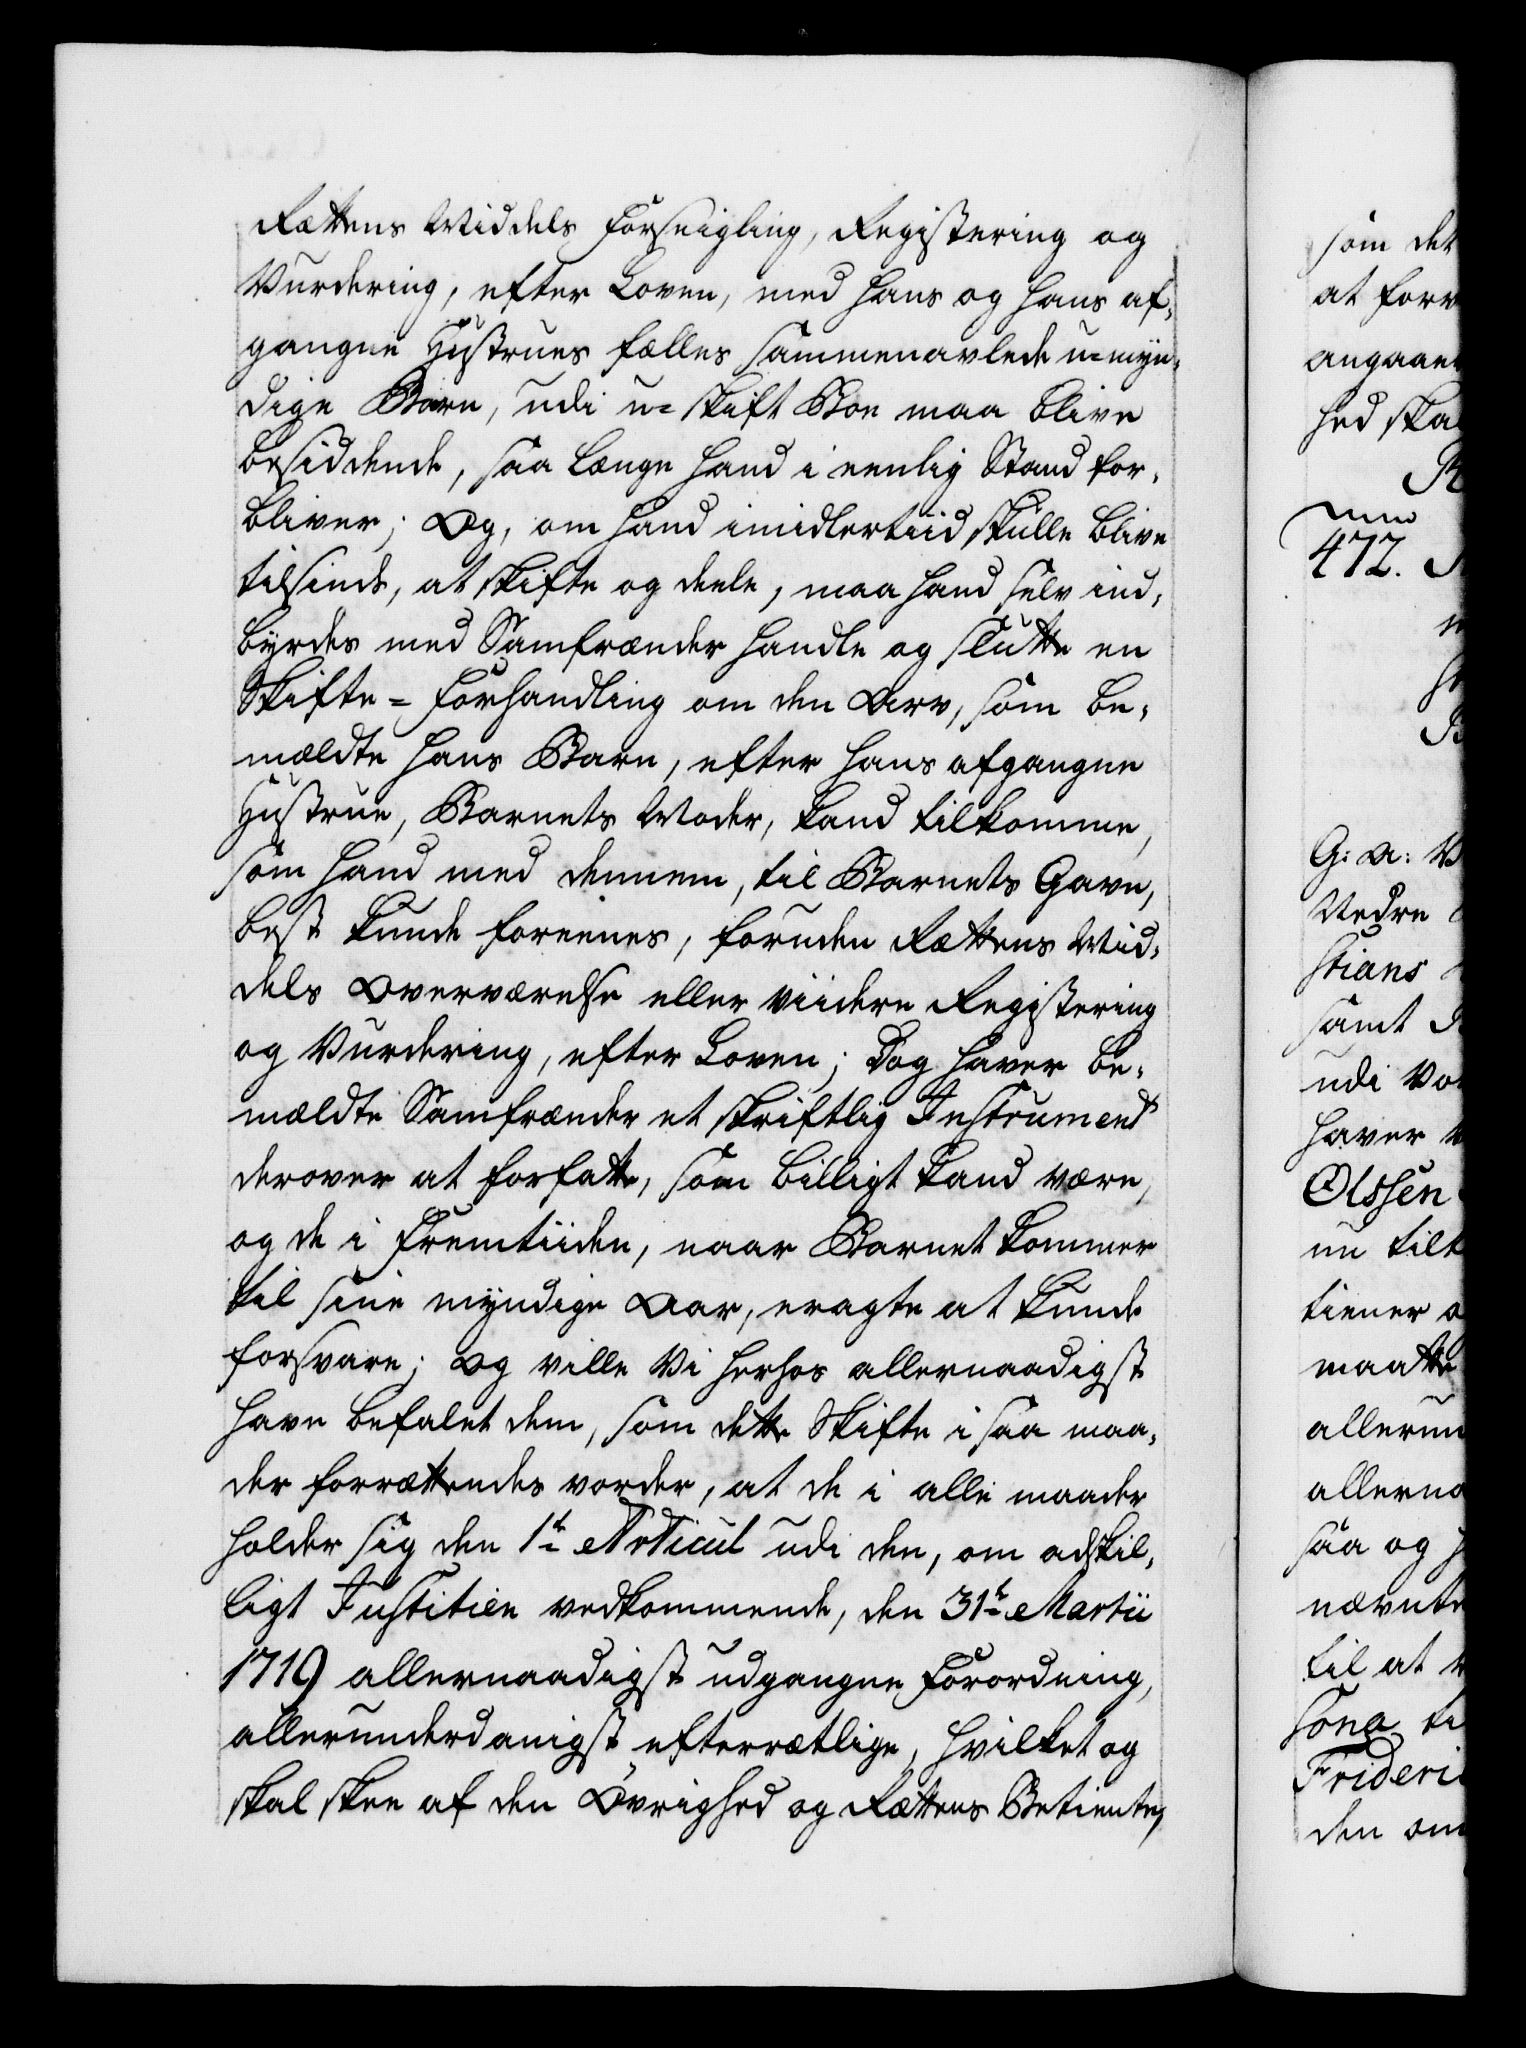 Rættens Middels Forseigling, Registering og
Vurdering, efter Loven, med hans og hans af-
gangne Hustrues fælles sammenavlede u-myn-
dige Barn, udi u-skift Boe maa blive
besiddende, saa længe hand i eenlig Stand for-
bliver; Og, om hand imidlertiid skulle blive
tilsinds, at skifte og deele, maa hand selv ind-
byrdes med Samfrænder handle og slutte en
Skifte-Forhandling om den Arv, som be-
mældte hans Barn, efter hans afgangne
Hustrue, Barnets Moder, kand tilkomme,
som hand med dennem, til Barnets Gavn,
best kunde foreenes, foruden Rættens Mid-
dels Overværelse eller viidere Registering
og Vurdering, efter Loven; Dog haver be-
mældte Samfrænder et skriftlig Instrument
derover at forfatte, som billigt kand være,
og de i Fremtiiden, naar Barnet kommer
til sine myndige Aar, eragte at kunde
forsvare; Og ville Vi herhos allernaadigst
have befalet dem, som dette Skifte i saa maa-
der forrættendes vorder, at de i alle maader
holder sig den 1te Articul udi den, om adskil-
ligt Justitien vedkommende, den 31te Martii
1719 allernaadigst udgangne Forordning,
allerunderdanigst efterrætlige, hvilket og
skal skee af den Övrighed og Rættens Betiente,
som det
at forr
angaaen
hed ska
472.
G: A: V
Vedre
stians
samt
udi Vo
haver
Olssen
nu tilk
tiener
maatte
allerun
allerna
saa og
nævnte
til at
sona ti
Frideri
den om